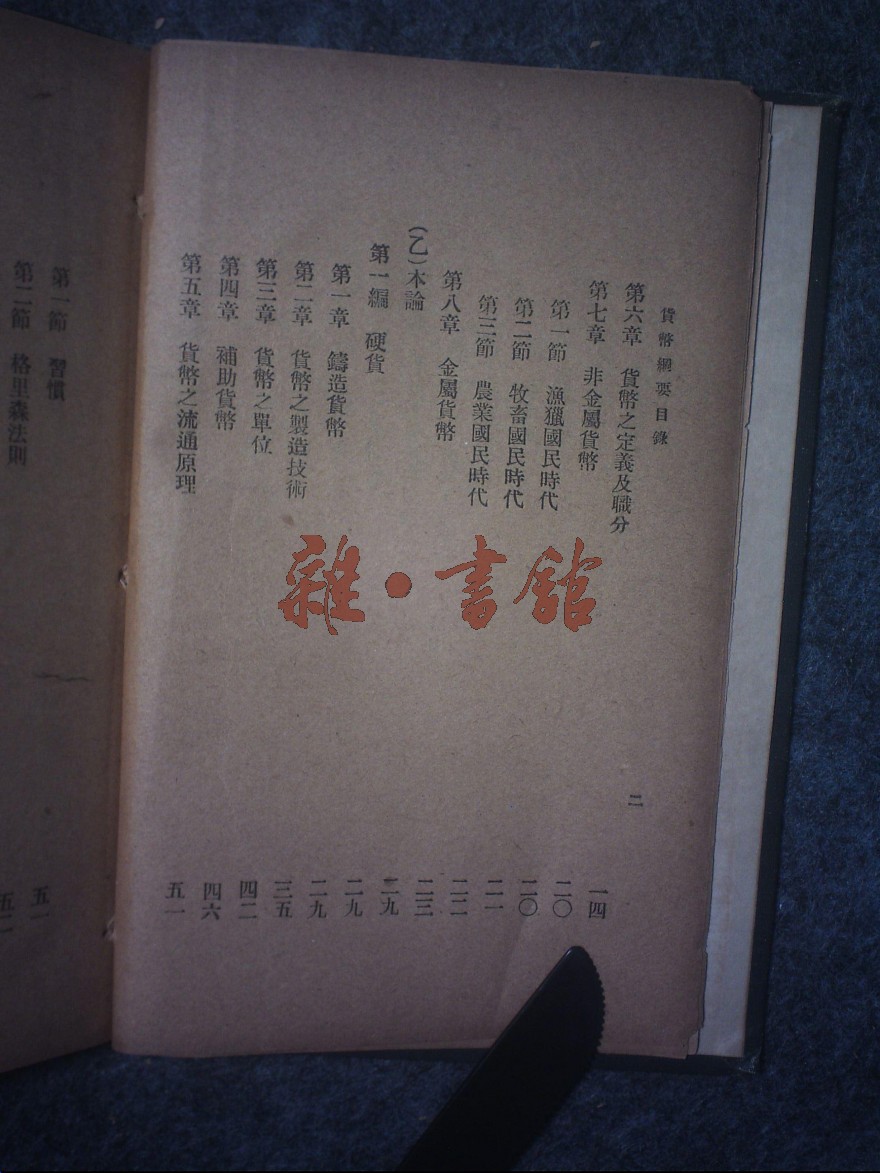 貨幣綱要目錄
二
第六章 貨幣之定義及職分 一四
第七章 非金屬貨幣 二〇
第一節 漁獵國民時代 二〇
第二節 牧畜國民時代 二一
第三節 農業國民時代 二二
第八章 金屬貨幣 二三
(乙)本論 二九
第一編 硬貨 二九
第一章 鑄造貨幣 二九
第二章 貨幣之製造技術 三五
第三章 貨幣之單位 四二
第四章 補助貨幣 四六
第五章 貨幣之流通原理 五一
第一節 習慣 五一
第二節 格里森法則 五二
雜·書館